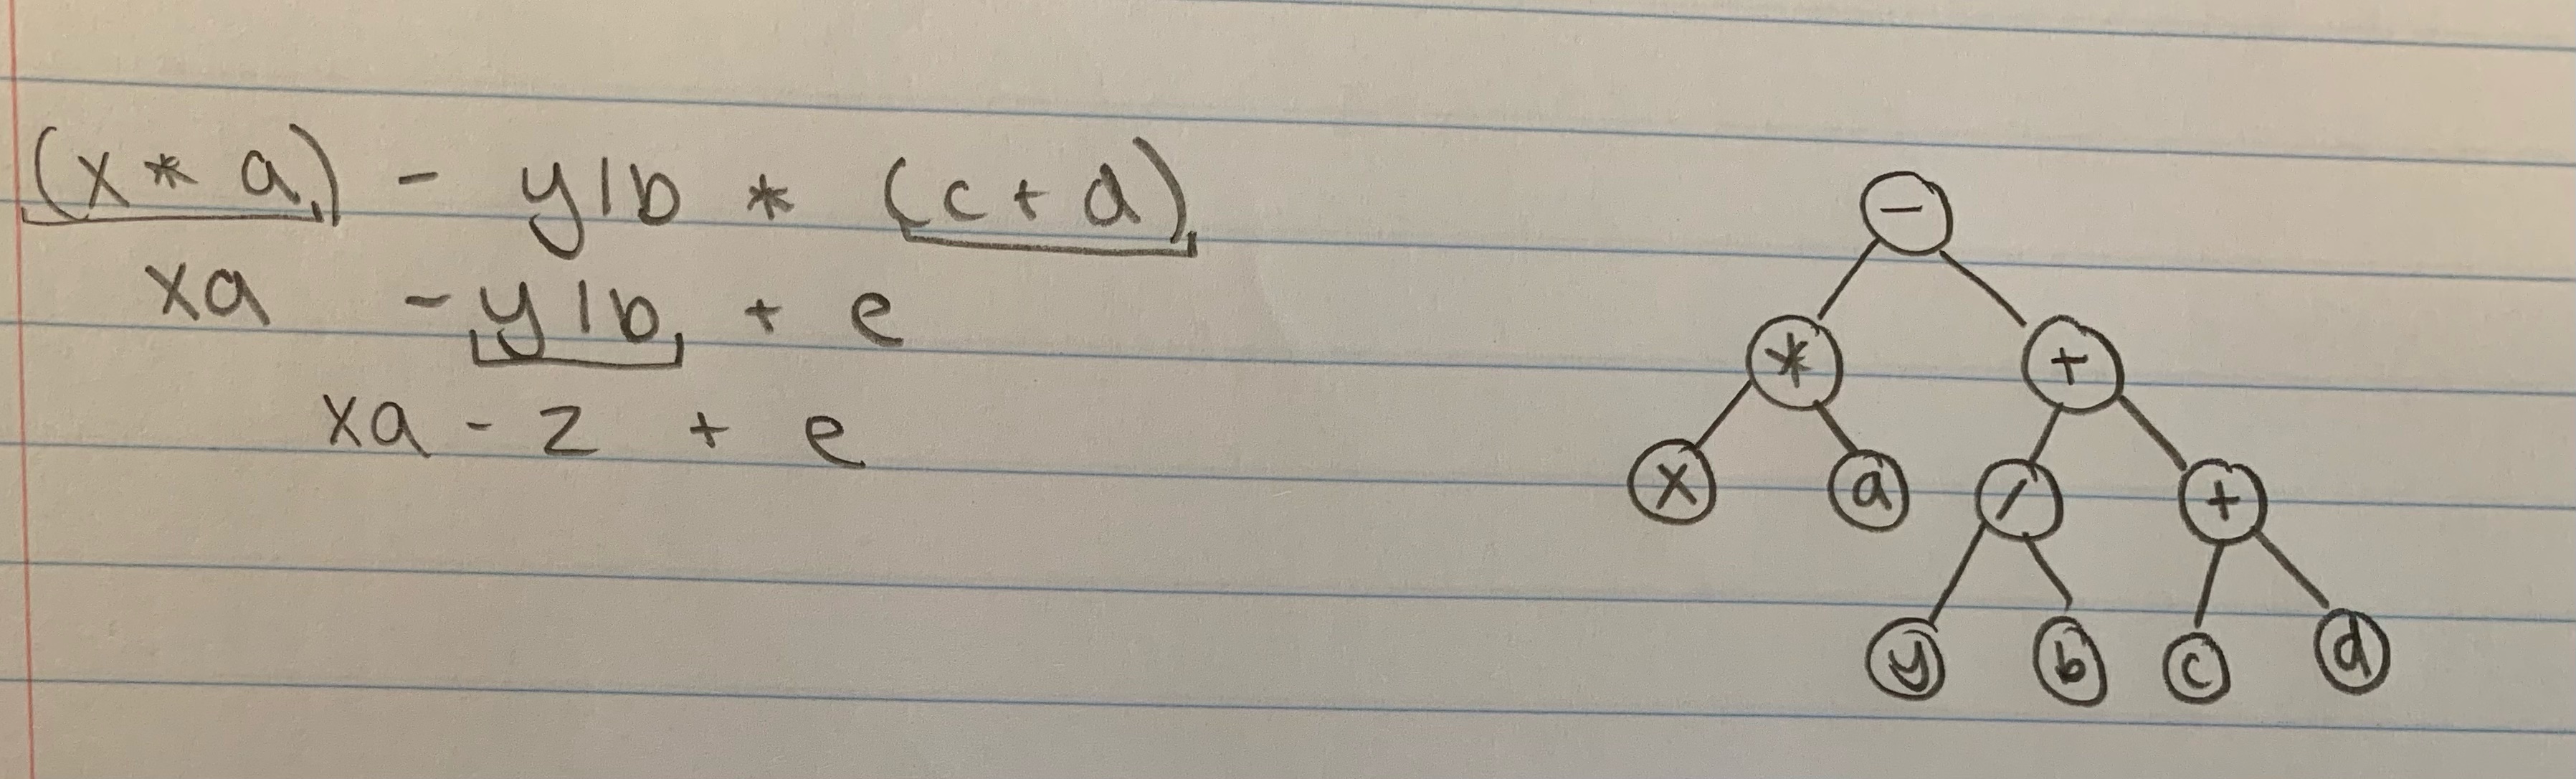 (x * a) - y/b * (c + d)
xa - y/b + e
xa - z + e
-
* +
x a / +
y b c d